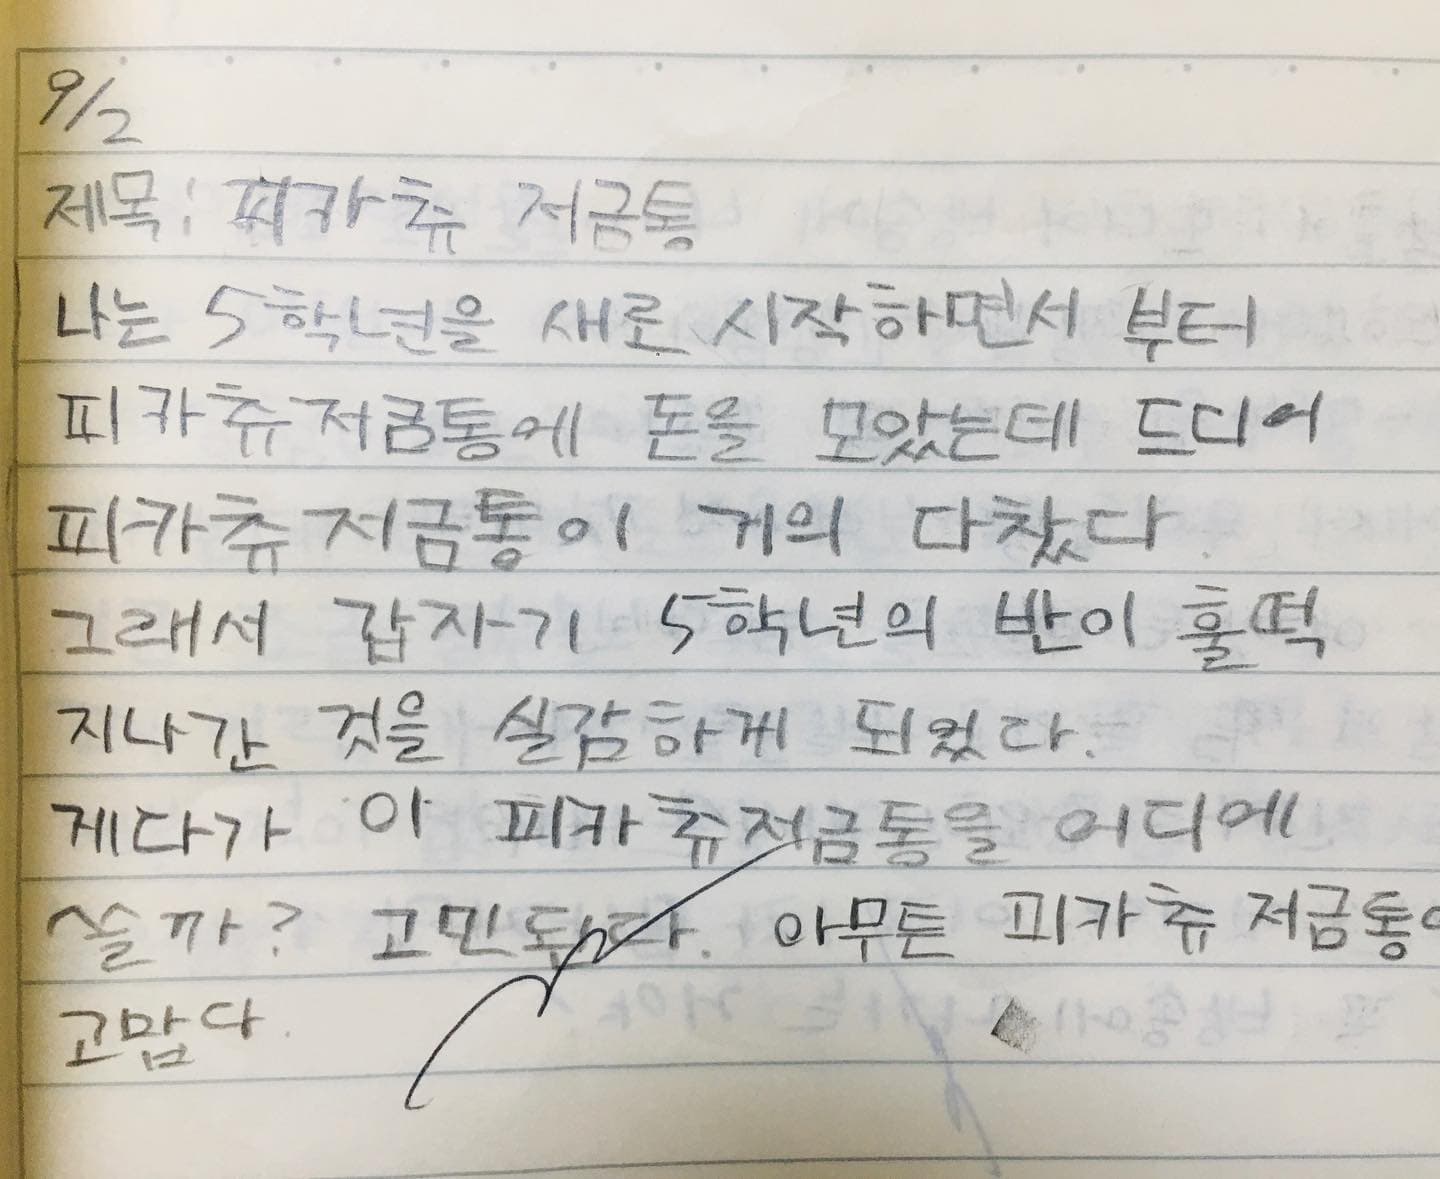 9/2
제목: 피카츄 저금통
나는 5학년을 새로 시작하면서 부터
피카츄저금통에 돈을 모았는데 드디어
피카츄저금통이 거의 다찼다.
그래서 갑자기 5학년의 반이 훌떡
지나간 것을 실감하게 되었다.
게다가 이 피카츄저금통을 어디에
쓸까? 고민된다. 아무튼 피카츄 저금통이
고맙다.